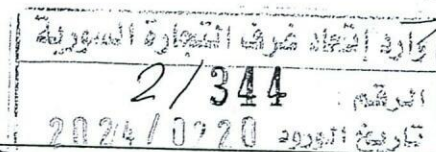 وارد إتحاد غرف التجارة السورية
الرقم : 2/344
تاريخ الورود 2024/0220